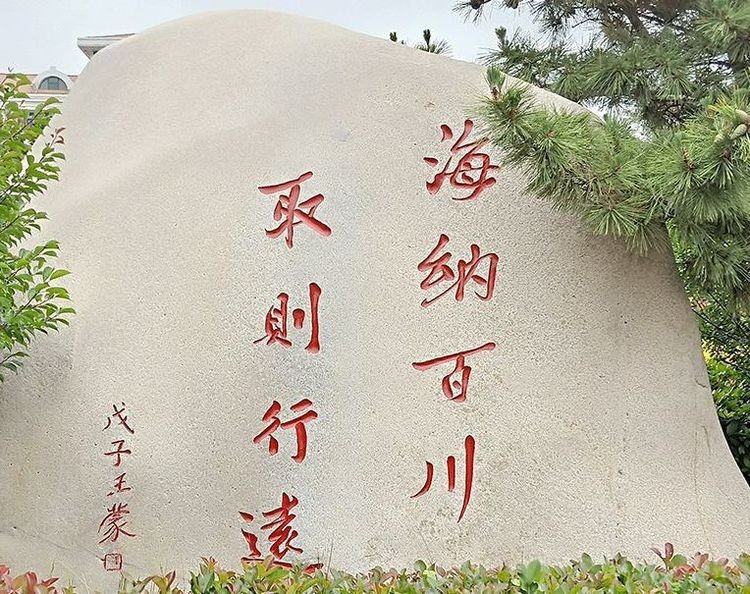 海纳百川
取則行遠
戊子王蒙